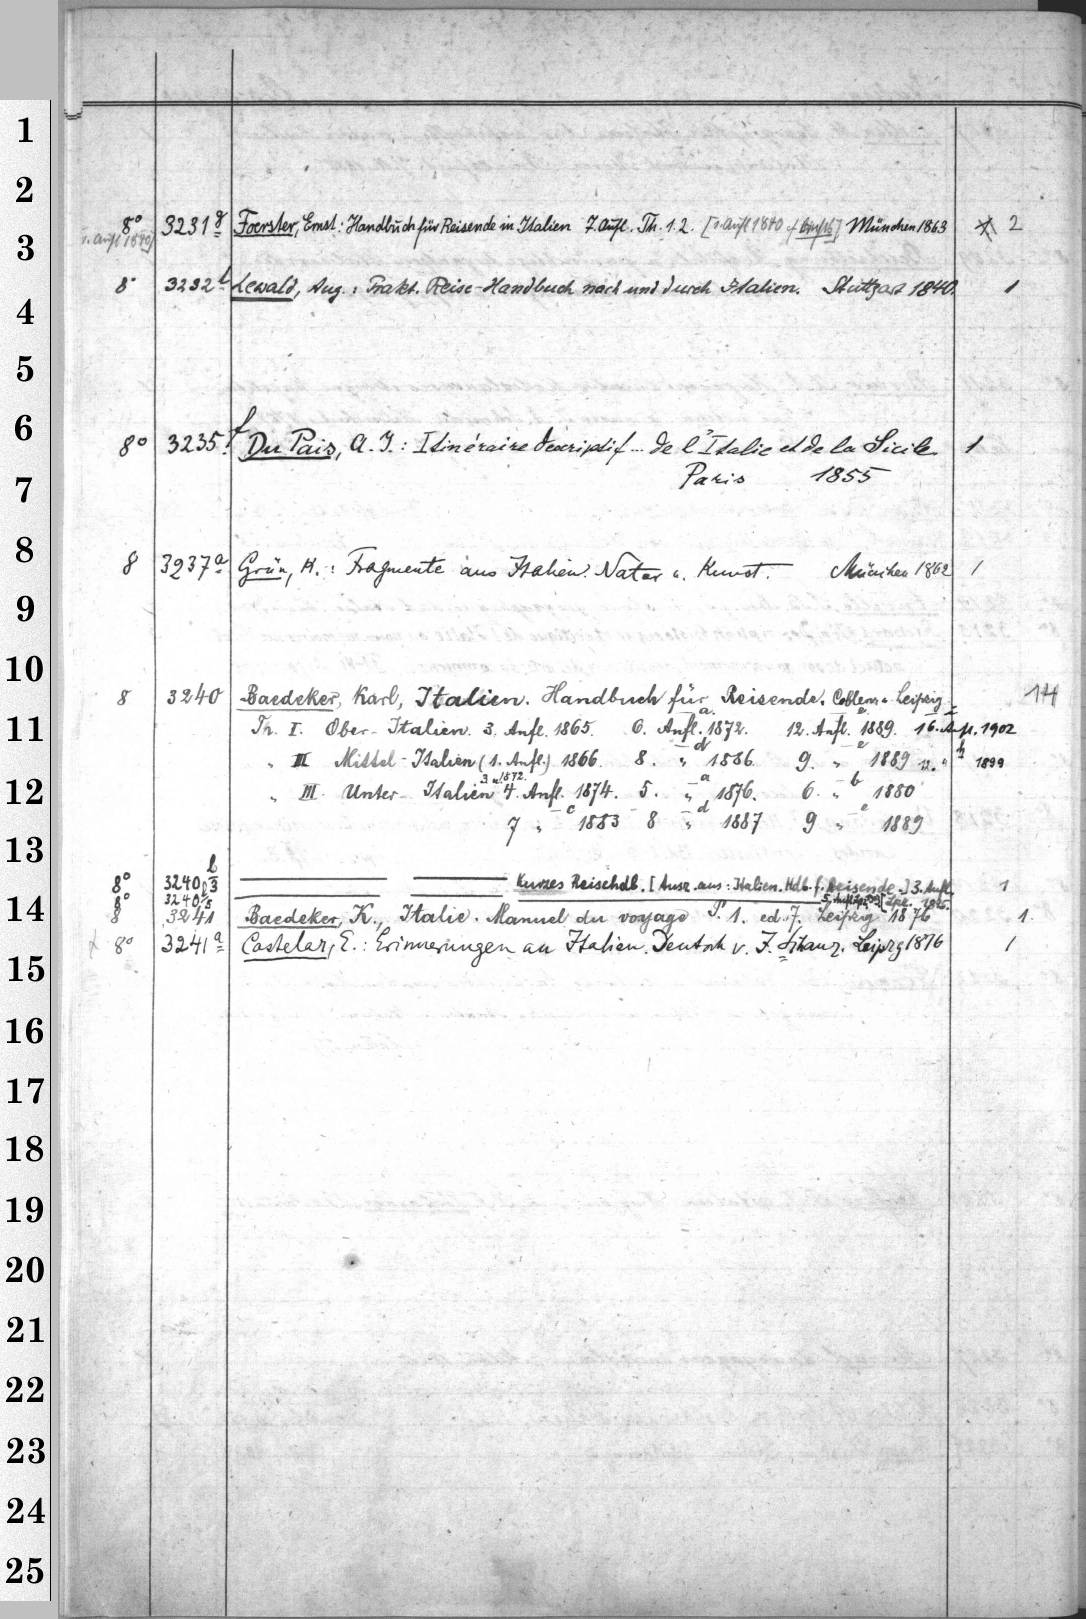 8° 3231g Foerster, Ernst: Handbuch für Reisende in Italien 7. Aufl. Th. 1. 2. [1. Aufl 1840 München 1863 2
8° 3232b Lewald, Aug.: Prakt. Reise-Handbuch nach und durch Italien. Stuttgart 1840. 1
8° 3235f Du Pais, A. J.: Itinéraire descriptif... de l'Italie et de la Sicile 1
Paris 1855
8 3237a Grün, K.: Fragmente aus Italien. Natur u. Kunst. München 1862 1
8 3240 Baedeker, Karl, Italien. Handbuch für Reisende. Coblenz u. Leipzig 14
Th. I. Ober-Italien. 3. Aufl. 1865. 6. Aufl. a 1872. 12. Aufl. e 1889. 16. Aufl. 1902
" III Mittel-Italien (1. Aufl.) 1866. 8. " d 1886. 9. " e 1889 12. " h 1899
3 u. 1872.
" III. Unter-Italien 4. Aufl. 1874. 5. " a 1876. 6. " b 1880
7 " c 1883 8 " d 1887 9 " e 1889
8° 3240 b/3 Kurzes Reisehdb. [Ausz. aus: Italien. Hdb. f. Reisende.] 3. Aufl. 1
8° 3240 b/5 5. Aufl.
8 3241 Baedeker, K., Italie. Manuel du voyage P. 1. ed. 7. Leipzig 1876 1.
8° 3241a Castelar, E.: Erinnerungen an Italien. Deutsch v. J. Schanz. Leipzg 1876 1
1
2
3
4
5
6
7
8
9
10
11
12
13
14
15
16
17
18
19
20
21
22
23
24
25